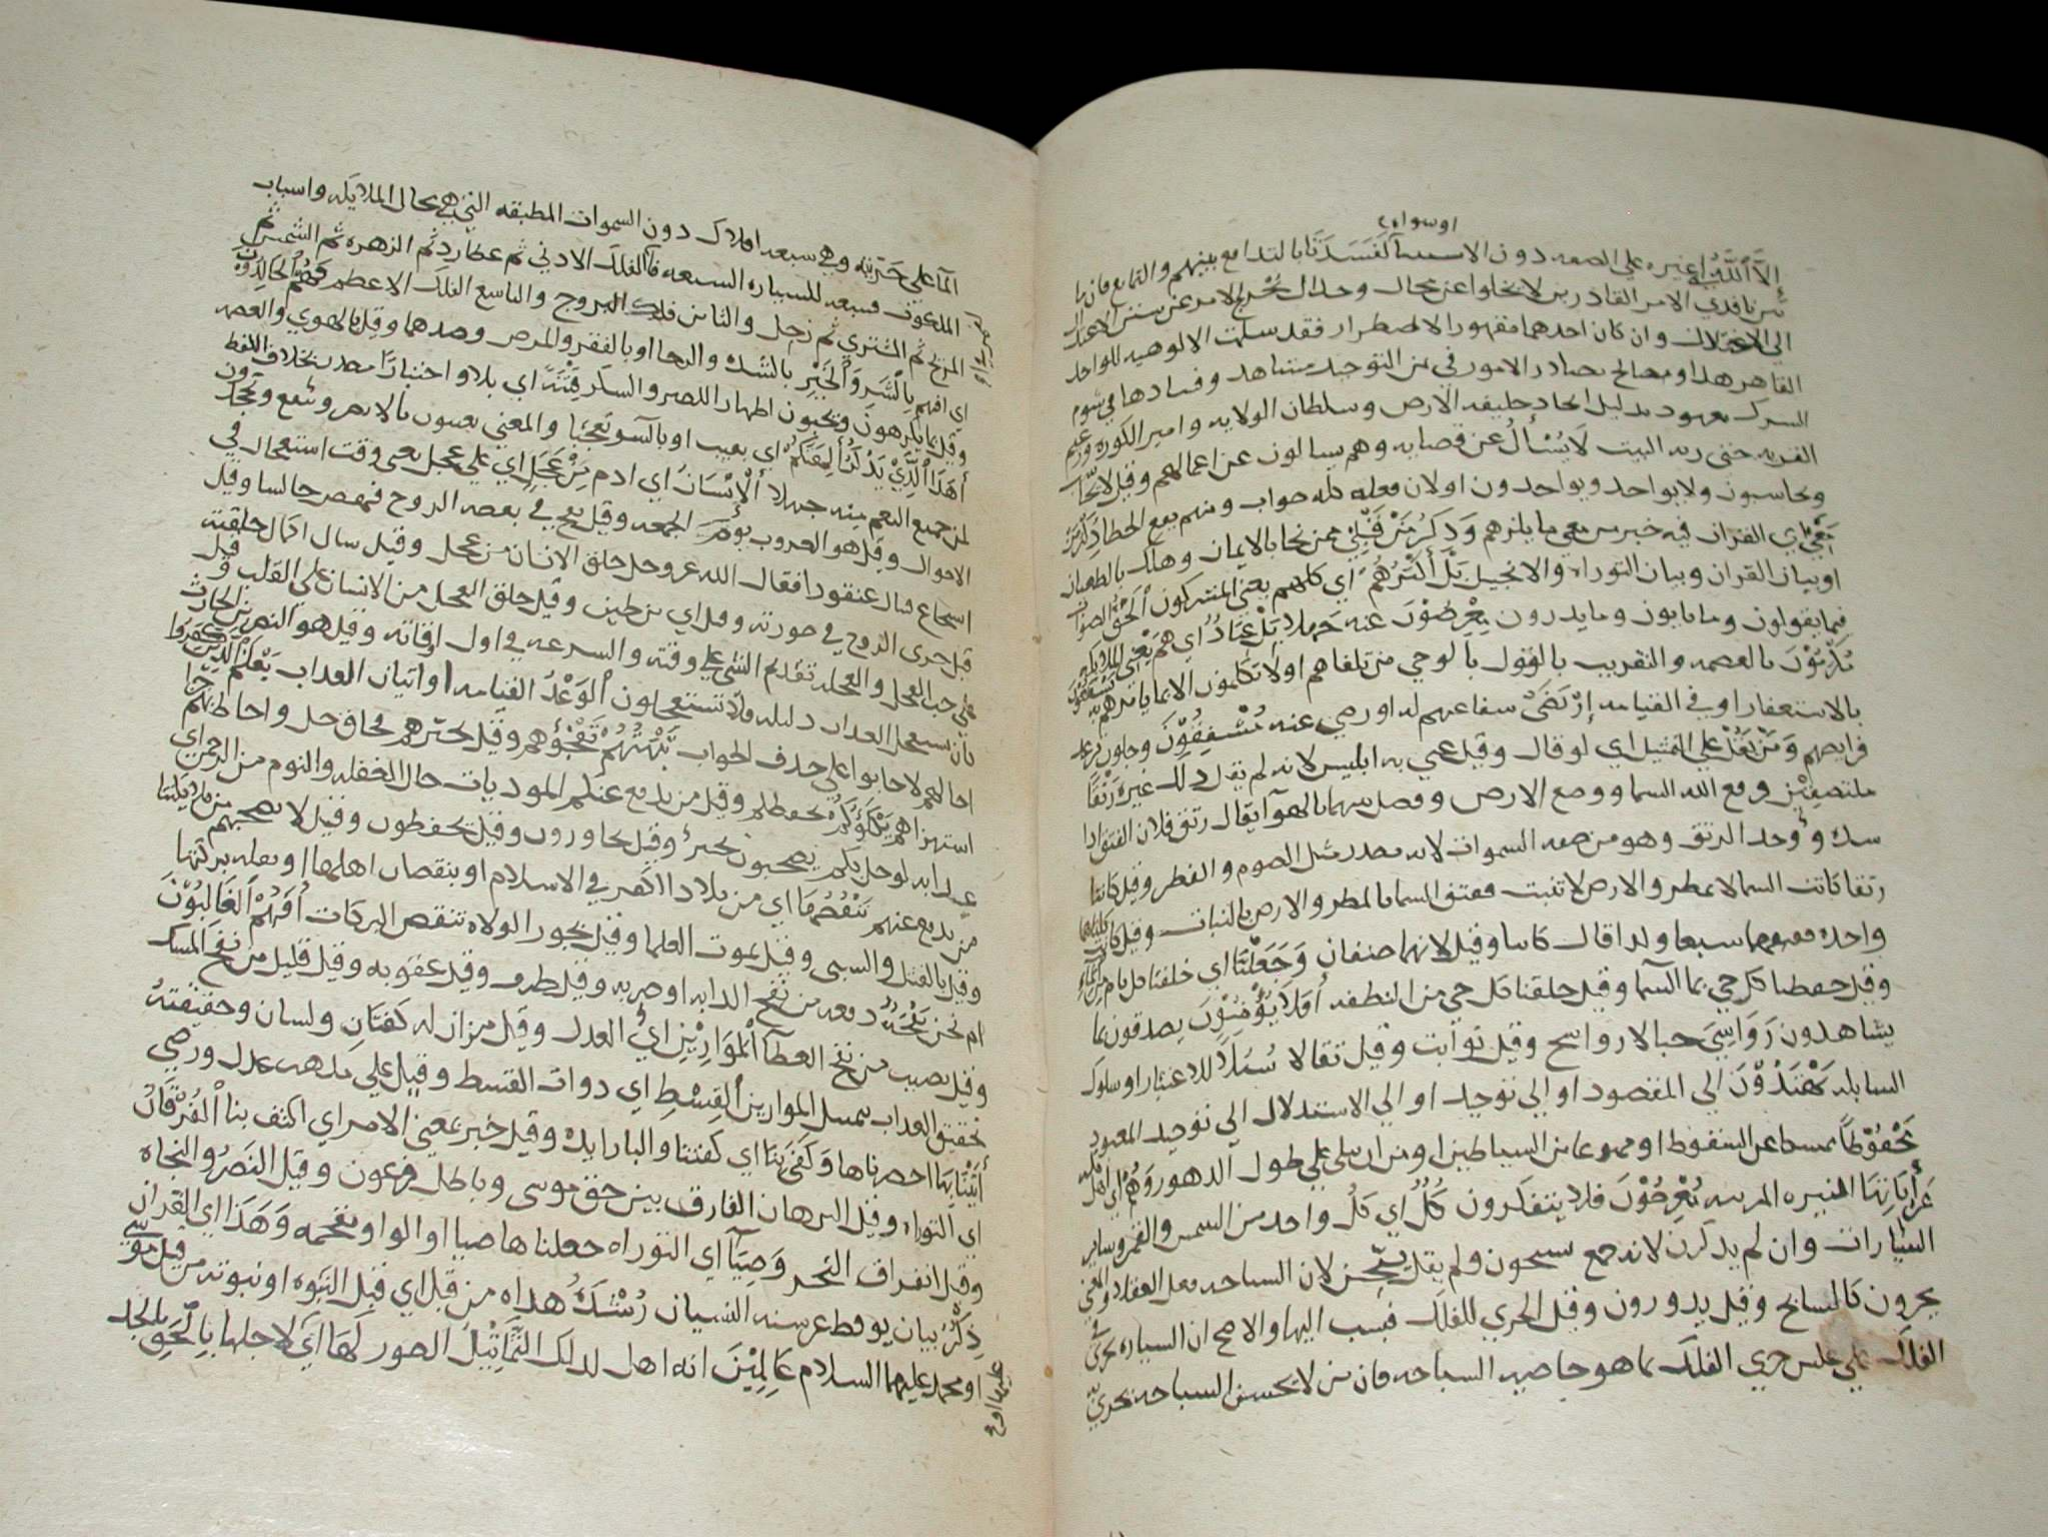 اوسواه
إلا الله اى غيره على الصفه دون الاستثنا لفسدتا بالتدافع بينهم والتمانع فان
نفرنا فدى الامر القادرين لا يخلوا عن محال وحدال يخرج الامر عن سنن الاعتدال
الى الاختلال وان كان احدهما مقهورا لاضطرار فقد سلمت الالوهيه للواحد
القاهر هذا ومصالح مصادر الامور فى من التوحيد مشاهد وفسادها فى شوم
الشرك معهود بدليل اتحاد خليفه الارض وسلطان الولايه وامير الكوره وزعيم
القريه حتى ربه البيت لا يسأل عن قضايه وهم يسالون عن اعمالهم وقيل لا يحا
ويحاسبون ولا يواخذ ويواخذون اولان فعله كله صواب ومنهم يقع الخطا ذكر من
معى اى القران فيه خبر من معى ما يلزهم وذكر من قبلى ممن نجا بالايمان وهلك بالطغيان
اوبيان القران وبيان التوراه والانجيل بل أكثرهم اى كلهم يعنى المشركون الحق الصواب
فيما يقولون وما يابون وما يدرون معرضون عنه جهلا بل عباد اى هم يعنى الملايكه
مكرمون بالعصمه والتقريب بالقول بالوحى من تلقاهم اولا تكلمون الا بما يامرهم به يشفعون
بالاستغفار او فى القيامه ارتضى شفاعتهم له او رضى عنه مشفقون وجلون
فرايصهم ومن يقل على التمثيل اى لو قال وقيل عنى به ابليس لانه لم يقل ذلك غيره رتقا
ملتصقتين ورفع الله السما ووضع الارض وفصل بينهما بالهوآ يقال رتق فلان الفتق اذا
سده ووحد الرتق وهو من صفه السموات لانه مصدر مثل الصوم والفطر وقيل كانتا
رتقا كانت السما لا تمطر والارض لا تنبت ففتق السما بالمطر والارض بالنبات وقيل كانت
واحده ففتقهما سبعا ولذا قال كانتا وقيل لانهما صنفان وجعلنا اى خلقنا كل نام من الماء
وقيل حفظنا كل حى بما السما وقيل خلقنا كل حى من النطفه أفلا يؤمنون يصدقون بما
يشاهدون رواسى جبالا رواسخ وقيل ثوابت وقيل ثقالا سبلا للاعتبار او سلوك
السابله يهتدون الى المقصود او الى توحيد او الى الاستدلال الى توحيد المعبود
محفوظا ممسكا عن السقوط او ممنوعا من الشياطين او من ان يبلى على طول الدهور وهم اى
عن أياتها المنيره المريه معرضون فلا يتفكرون كل اى كل واحد من الشمس والقمر وساير
السيارات وان لم يذكرن لانه جمع يسبحون ولم يقل يسبحن لان السباحه فعل العقلا والمعنى
يجرون كالسابح وقيل يدورون وقيل الجرى للفلك فنسب اليها والاصح ان السياره تجرى فى
الفلك على عكس جرى الفلك بما هو خاصيه السباحه فان من لا يحسن السباحه يجرى به
الما على جريته وهى سبعه افلاك دون السموات المطبقه التى هى محال الملايكه واسباب
الملكوت فسبعه للسياره السبعه فالفلك الادنى ثم عطارد ثم الزهره ثم الشمس ثم
المريخ ثم المشترى ثم زحل والثامن فلك البروج والتاسع الفلك الاعظم فهم الخالدون
اى افهم بالشر والخير بالشده والرخا او بالفقر والمرض وضدهما وقيل بالهوى والعصمه
وقيل بما يكرهون ويحبون اظهار الصبر والشكر فتنة اى بلا واختبارا مصدر بخلاف اللفظ
أهذا الذي يذكر ألهتكم اى بعيب او بالسو تعجبا والمعنى يعبدون مالا يضر وينفع
لمن جميع النعم منه جهلا الإنسان اى ادم من عجل اى على عجل يعنى وقت استعجال فى
الاحوال وقيل هو الغروب يوم الجمعه وقيل نفخ فى بعضه الروح فنهض جالسا وقيل
اسجاع منال عنقودا فقال الله عز وجل خلق الانسان من عجل وقيل سال اكمال خلقته
قبل جرى الروح فى صورته وقيل اى من طين وقيل خلق العجل من الانسان على القلب وقيل
على حب العجل والعجله تقدم الشى على وقته والسرعه فى اول اوقاته وقيل هو النضر بن الحارث
بان يستعجل العذاب دليله فلا تستعجلون الوعد القيامه او اتيان العذاب يعلم الذين كفروا
احالهم لاجابوا على حذف الجواب تبهتهم تفجؤهم وقيل تحيرهم فحاق حل واحاط بهم
استهزاهم يكلؤكم يحفظكم وقيل من يدفع عنكم الموذيات حال الغفله والنوم من الرحمن اى
عذابه لو حل بكم يصحبون نجير وقيل يجاورون وقيل يحفظون وقيل لا يصحبهم من ملايكتنا
من يدفع عنهم ننقصها اى من بلاد الكفر فى الاسلام او بنقصان اهلها او بقله بركتها
وقيل بالقتل والسبى وقيل بموت العلما وقيل بجور الولاه تنقص البركات أفهم الغالبون
ام نحن نفحة دفعه من نفح الدابه او ضربه وقيل طرف وقيل عقوبه وقيل قليل من نفح المسك
وقيل نصيب من نفح العطا الموازين اى العدل وقيل ميزان له كفتان ولسان وحقيقته
تحقيق العذاب بمسل الموازين القسط اى ذوات القسط وقيل على مذهب عدل ورضى
أتينا بها احضرناها وكفى بنا اى كفتنا والبا زايده وقيل خبر بمعنى الامر اى اكتف بنا الفرقان
اى التوراه وقيل البرهان الفارق بين حق موسى وباطل فرعون وقيل النصر والنجاه
وقيل انفراق البحر وضيآ اى التوراه جعلناها ضيا او الواو مقحمه وهذا اى القران
ذكر بيان يوقظ عن سنه النسيان رشده هداه من قبل اى قبل النبوه او نبوته من قبل موسى
او محمد عليهما السلام عالمين انه اهل لذلك التماثيل الصور لها اى لاجلها بالحق بالجد
عليهما اوح